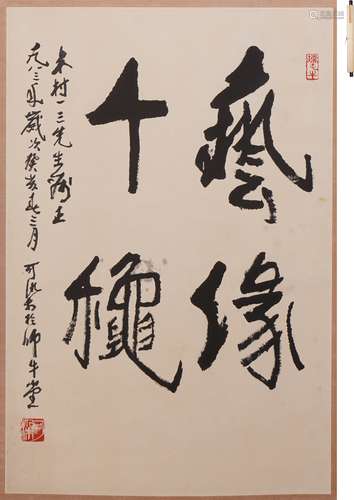 藝緣
千穐
木村一三先生嘱正
一九八三年歲次癸亥春三月 可染於師牛堂